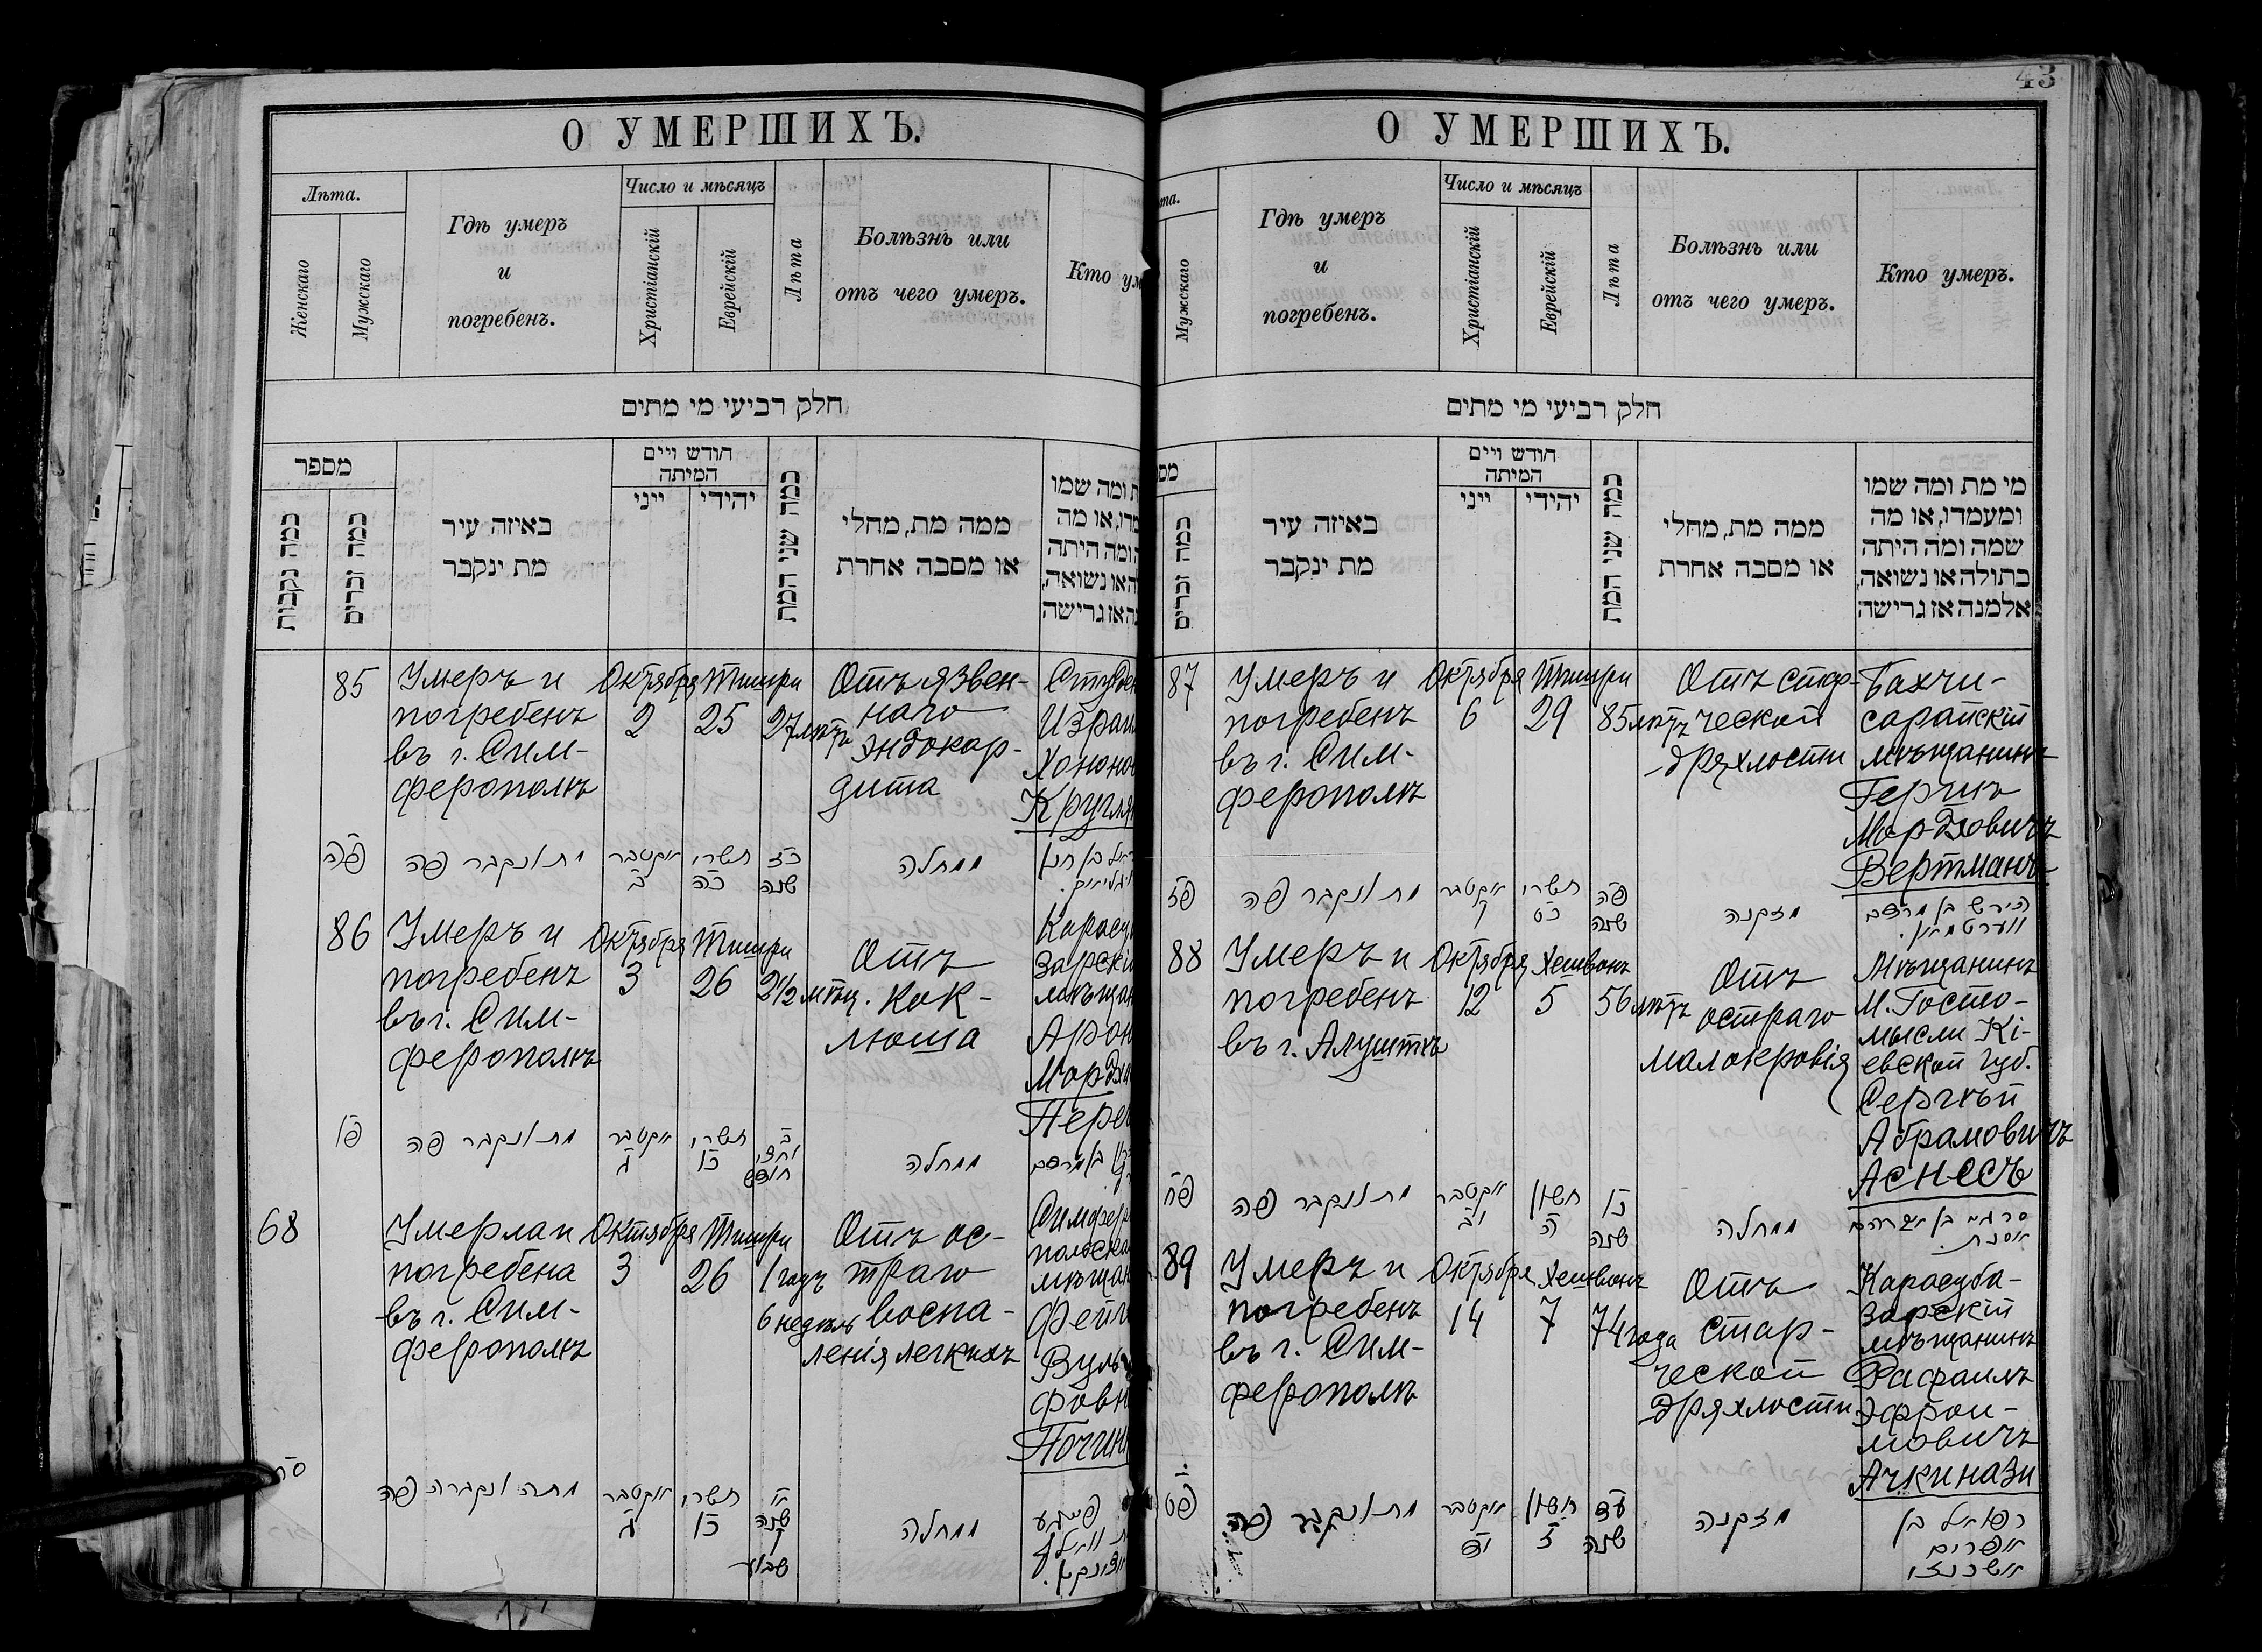 О УМЕРШИХЪ.
Лѣта.
Женскаго
Мужскаго
Гдѣ умеръ
и
погребенъ.
Число и мѣсяцъ
Христіанскій
Еврейскій
Лѣта
Болѣзнь или
отъ чего умеръ.
Кто ум
חלק רביעי מי מתים
מספר
כמה נקבות
כמה זכרים
באיזה עיר
מת ינקבר
חודש ויים
המיתה
ייני
יהידי
כמה שני המת
ממה מת, מחלי
או מסבה אחרת
ת ומה שמו
מדו, או מה
ה ומה היתה
לה או נשואה,
נה אז גרישה
85
Умеръ и
погребенъ
въ г. Сим-
ферополѣ
Октября
2
Тишри
25
27 лѣтъ
Отъ язвен-
наго
эндокар-
дита
Студен
Израил
Хононов
Кругля
פה
מת ונקבר פה
אקטבר
ב
תשרי
כה
כז
שנה
ממחלה
86
Умеръ и
погребенъ
въ г. Сим-
ферополѣ
Октября
3
Тишри
26
2½ мѣц.
Отъ
кок-
люша
Карасу
зарскій
мѣщан
Арон
Мордха
Пере
פו
מת ונקבר פה
אקטבר
ג
תשרי
כו
ב
וחצי
חודש
ממחלה
68
Умерла и
погребена
въ г. Сим-
ферополѣ
Октября
3
Тишри
26
1 годъ
6 недѣль
Отъ ос-
траго
воспа-
ленія легкихъ
Симфер
польска
мѣщан
Фейг
Вуль
фовн
Почин
סח
מתה ונקברה פה
אקטבר
ג
תשרי
כו
א
שנה
ו
שבוע
ממחלה
פייגע
43
О УМЕРШИХЪ.
та.
Мужскаго
Гдѣ умеръ
и
погребенъ.
Число и мѣсяцъ
Христіанскій
Еврейскій
Лѣта
Болѣзнь или
отъ чего умеръ.
Кто умеръ.
חלק רביעי מי מתים
מס
כמה זכרים
באיזה עיר
מת ינקבר
חודש ויים
המיתה
ייני
יהידי
כמה שני המת
ממה מת, מחלי
או מסבה אחרת
מי מת ומה שמו
ומעמדו, או מה
שמה ומה היתה
בתולה או נשואה,
אלמנה אז גרישה
87
Умеръ и
погребенъ
въ г. Сим-
ферополѣ
Октября
6
Тишри
29
85 лѣтъ
Отъ стар-
ческой
дряхлости
Бахчи-
сарайскій
мѣщанинъ
Гершъ
Мордховичъ
Вертманъ
פז
מת ונקבר פה
אקטבר
ו
תשרי
כט
פה
שנה
מזקנה
הירש בן מרדכי
ווערטמאן.
88
Умеръ и
погребенъ
въ г. Алуштѣ
Октября
12
Хешвонъ
5
56 лѣтъ
Отъ
остраго
малокровія
Мѣщанинъ
М. Госто-
мысли Кі-
евской губ.
Сергѣй
Абрамовичъ
Аснесъ
פח
מת ונקבר פה
אקטבר
יב
חשון
ה
נו
שנה
ממחלה
סרגי בן אברהם
אסנת.
89
Умеръ и
погребенъ
въ г. Сим-
ферополѣ
Октября
14
Хешвонъ
7
74 года
Отъ
стар-
ческой
дряхлости
Карасуба-
зарскій
мѣщанинъ
Рафаилъ
Эфрои-
мовичъ
Ачкинази
פט
מת ונקבר פה
אקטבר
יד
חשון
ז
עד
שנה
מזקנה
רפואיל בן
אפרים
אשכנזי